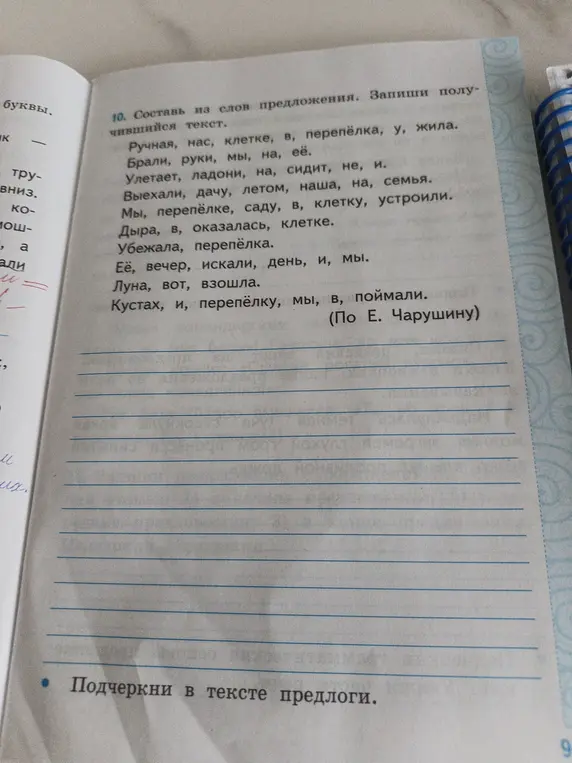 буквы.
к —
тру-
вниз.
ко-
мош-
а
али
10. Составь из слов предложения. Запиши полу-
чившийся текст.
Ручная, нас, клетке, в, перепёлка, у, жила.
Брали, руки, мы, на, её.
Улетает, ладони, на, сидит, не, и.
Выехали, дачу, летом, наша, на, семья.
Мы, перепёлке, саду, в, клетку, устроили.
Дыра, в, оказалась, клетке.
Убежала, перепёлка.
Её, вечер, искали, день, и, мы.
Луна, вот, взошла.
Кустах, и, перепёлку, мы, в, поймали.
(По Е. Чарушину)
• Подчеркни в тексте предлоги.
9